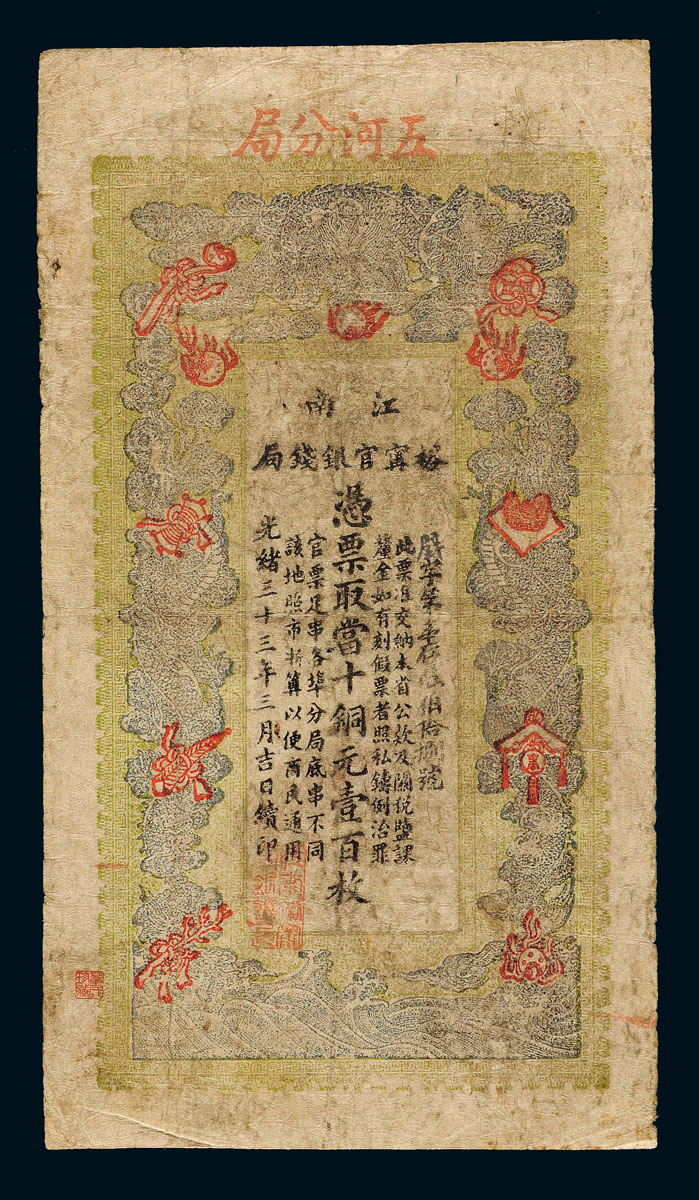 五河分局
江南
裕寧官銀錢局
此票准交納本省公欵及關稅鹽課
釐金如有刻假票者照私鑄例治罪
憑票取當十銅元壹百枚
官票足串各埠分局底串不同
該地照市折算以便商民通用
光緒三十三年三月吉日續印